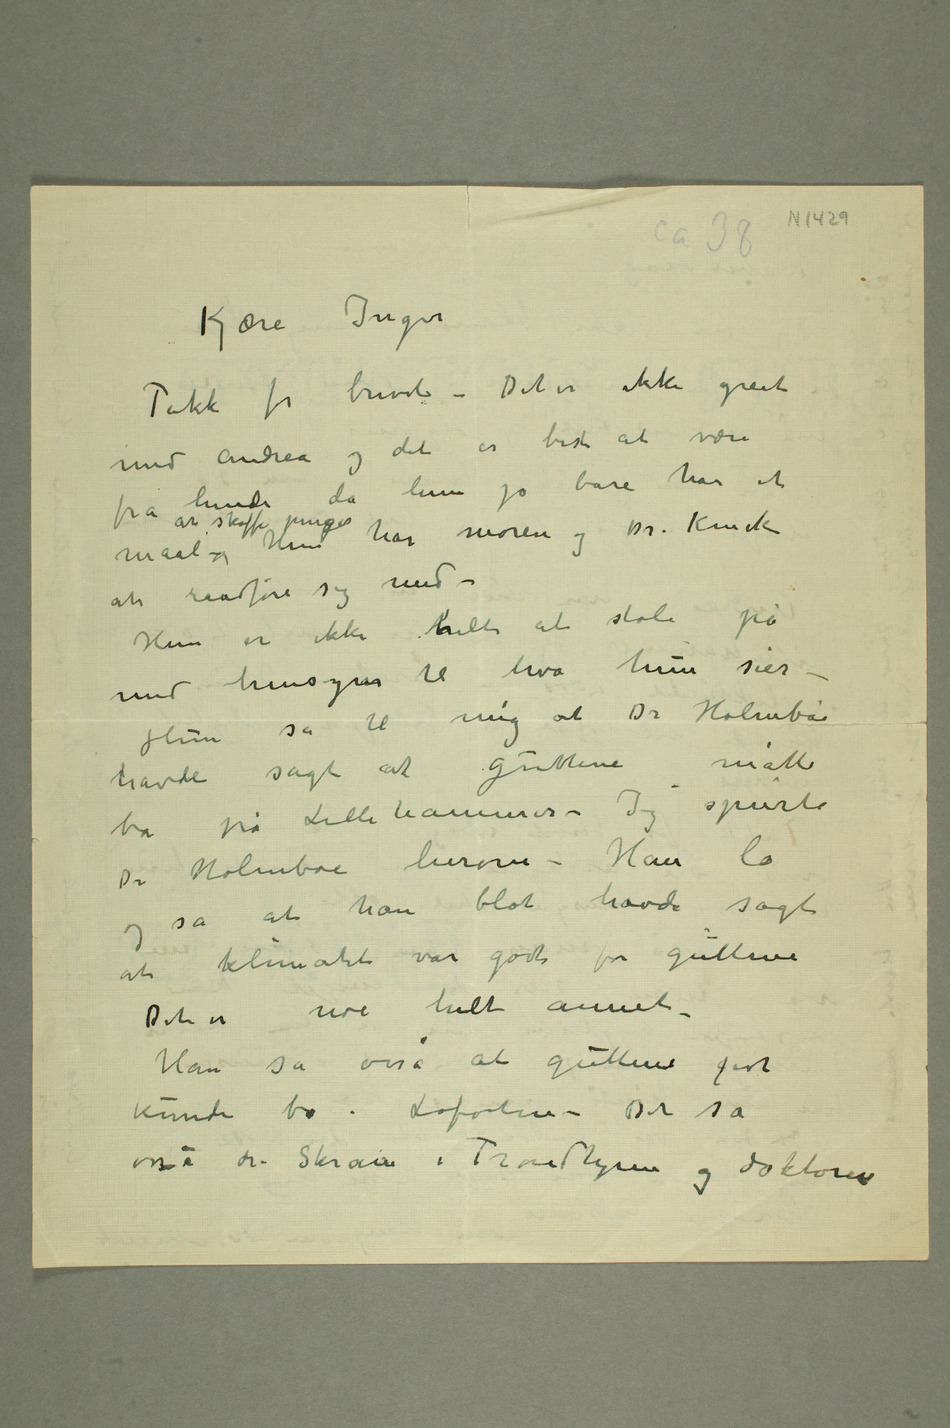 ca 38
N1429
Kjære Inger
Takk for brevet – Det er ikke greit
med Andrea og det er best at være
fra hende da hun jo bare har et
at skaffe penger
maal – Hun har moren og Dr. Kinck
at raadføre sig med –
Hun er ikke helt at stole på
med hensyn til hva hun sier –
Hun sa til mig at Dr Holmboe
havde sagt at guttene måtte
bo på Lillehammer – Jeg spurte
Dr Holmboe herom – Han lo
og sa at han blot havde sagt
at klimatet var godt for guttene
Det er noe helt annet –
Han sa også at guttene godt
kunde bo i Lofoten – Det sa
også dr. i Trondhjem og doktoren